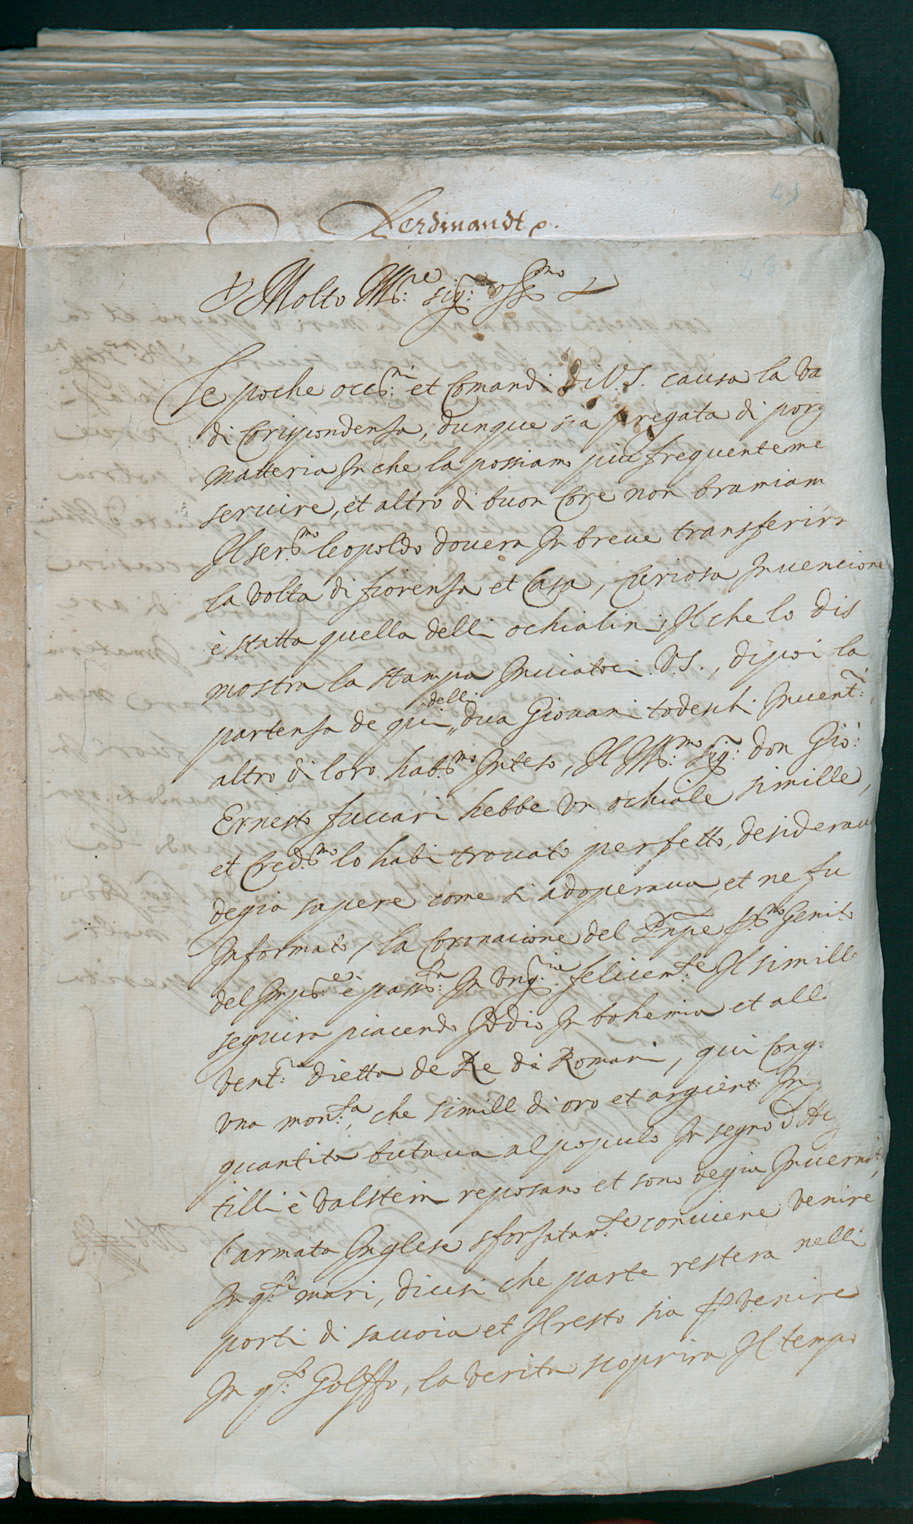 43
Ferdinandt
43
Molto Ill.re sig.r oss.mo
Le poche occ.ni et Comandi di V.S. causa la va
di Corispondensa, dunque sia pregata di porg
matteria In che la possiam più frequenteme
seruire, et altro di buon Core non bramiam
Il ser.mo leopoldo douera In breue transferirs
la volta di fiorensa et Casa, Curiosa Inuencione
è statta quella delli ochialini, Il che lo dis
mostra la stampa Inuiatoci V.S., dipoi la
partensa de qui delli dua Giouani todeschi Inuent.i
altro di loro hab.mo Inteso, Il Ill.mo sig.r don Gio:
Ernesto fuccari hebbe vn ochiale simille,
et Cred.mo lo habi trouato perfetto, desideraua
degia sapere come si adoperaua, et ne fu
Informato, la Coronacione del Prnpe Genito
del Imp.re è pass.ta In Vng.ria felicem.te Il simille
seguira piacendo Iddio In bohemia et all
vent.a dietta de Re de Romani, qui Cong.
vna mon.ta, che simill di oro et argiento In
quantita butaua al populo In segno d
tilli è valstein reposano et sono vegia Inuern
l'armata Inglese sforsatam.te conuiene venire
In q.sti mari, dicesi che parte restera nelli
porti di sauoia et Il resto sia p venire
In q.sto Golffo, la verita scoprira Il tempo